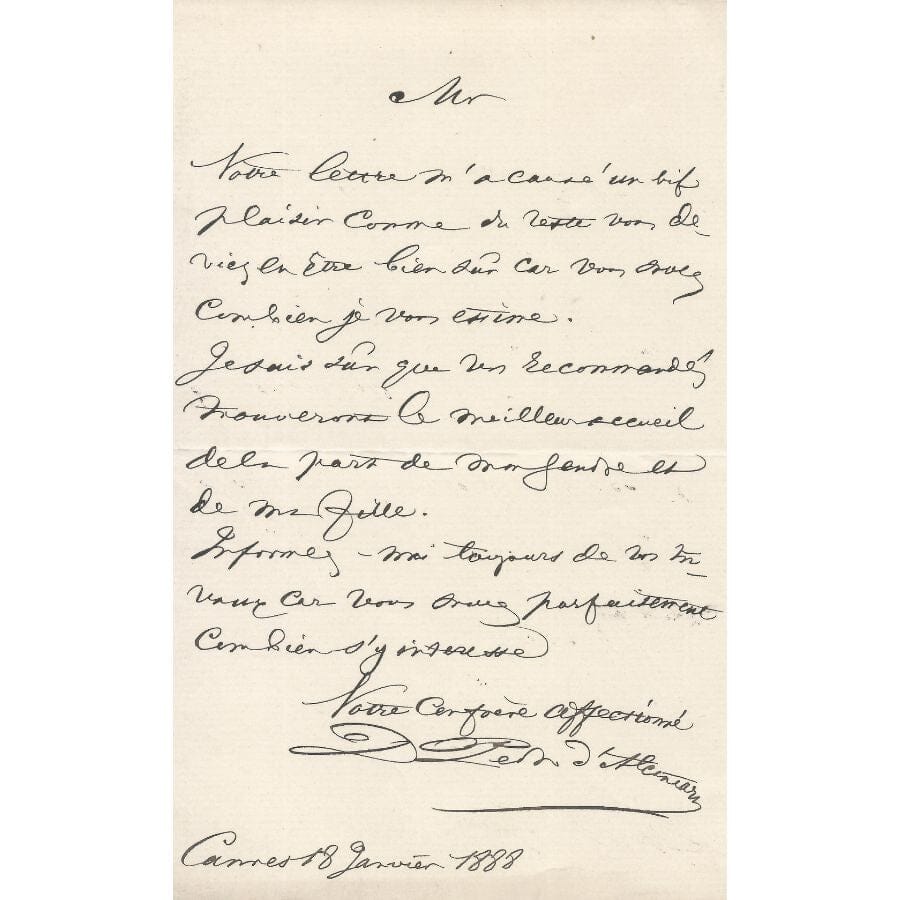 Mr
Votre lettre m'a causé un vif
plaisir comme du reste vous de-
viez en être bien sûr car vous savez
combien je vous estime.
Je suis sûr que vos recommandés
trouveront le meilleur accueil
de la part de mon gendre et
de ma fille.
Informez-moi toujours de vos tra-
vaux car vous savez parfaitement
combien s'y intéresse
Votre confrère affectionné
D. Pedro d'Alcantara
Cannes 18 Janvier 1888